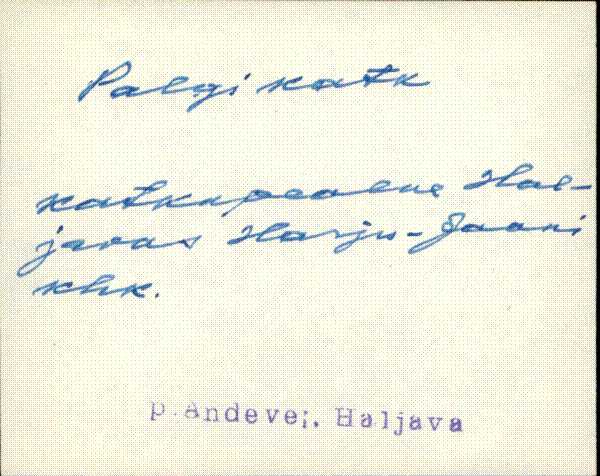 Palgikatk
katkupealne Hal-
javas Harju-Jaani
khk.
P. Andevei, Haljava